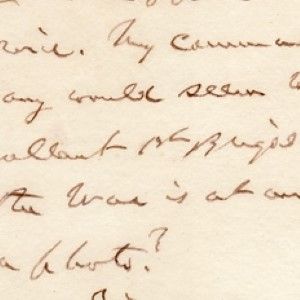 My comman
any would seem
allant 1st Brigd
the War is at an
a photo?